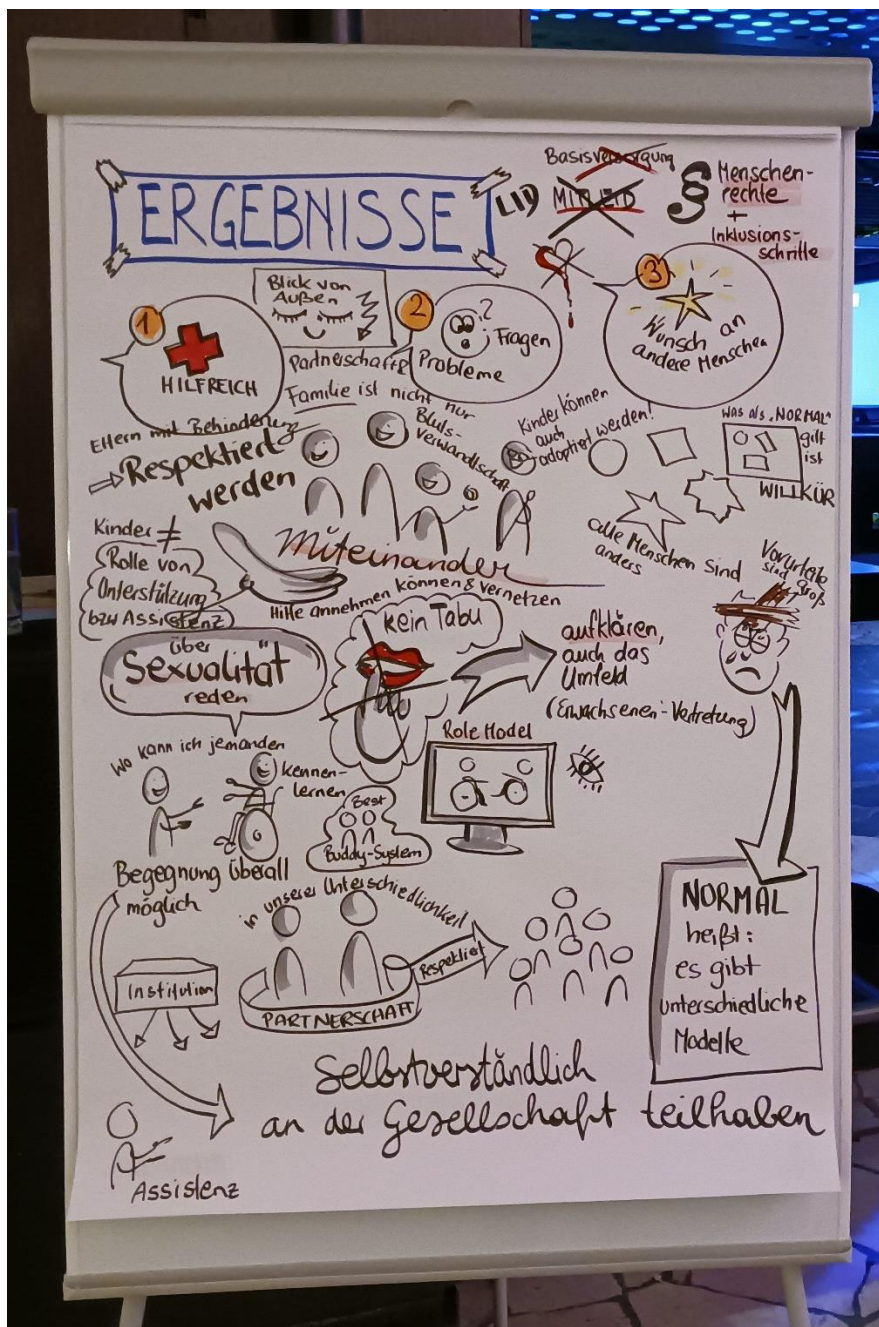 ERGEBNISSE
Basisversorgung
MITLEID
§ Menschen-
rechte
+
Inklusions-
schritte
1
HILFREICH
Blick von
Außen
2
?
Fragen
Probleme
3
Wunsch an
andere Menschen
Partnerschaft
Familie ist nicht nur
Bluts-
verwandtschaft
Eltern mit Behinderung
Respektiert
werden
Kinder können
auch
adoptiert werden!
was als „NORMAL"
gilt
ist
WILLKÜR
alle Menschen sind
anders
Kinder ≠
Rolle von
Unterstützung
bzw Assistenz
Miteinander
Hilfe annehmen können & vernetzen
Vorurteile
sind groß
über
Sexualität
reden
kein Tabu
aufklären,
auch das
Umfeld
(Erwachsenen-Vertretung)
Wo kann ich jemanden
kennen-
lernen
Best
Buddy-System
Role Model
Begegnung überall
möglich
in unserer Unterschiedlichkeit
Institution
PARTNERSCHAFT
Respektiert
NORMAL
heißt:
es gibt
unterschiedliche
Modelle
Selbstverständlich
an der Gesellschaft teilhaben
Assistenz